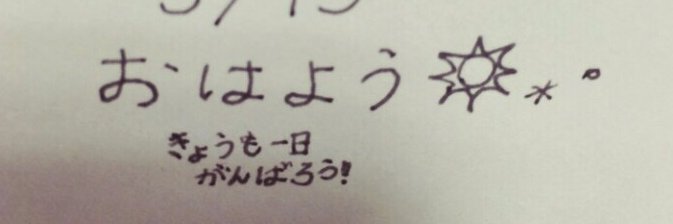 おはよう☀*。
きょうも一日
がんばろう!